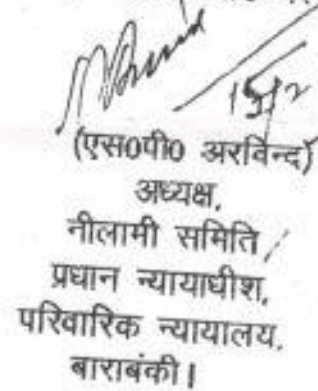 15/12
(एस0पी0 अरविन्द)
अध्यक्ष,
नीलामी समिति
प्रधान न्यायाधीश,
परिवारिक न्यायालय,
बाराबंकी।